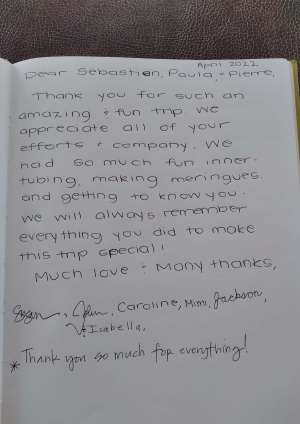 April 2022
Dear Sebastien, Paula, + Pierre,
Thank you for such an
amazing + fun trip we
appreciate all of your
efforts + company. We
had so much fun inner-
tubing, making meringues,
and getting to know you.
We will always remember
everything you did to make
this trip special!
Much love + Many thanks,
Caroline, Mimi, Jackson,
+ Isabella,
* Thank you so much for everything!